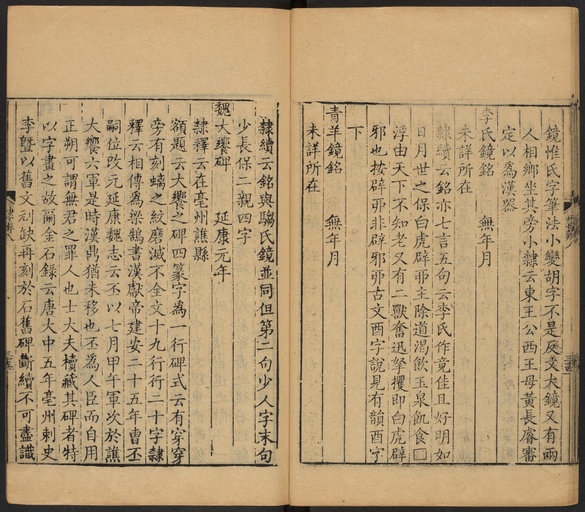 鏡惟氏字筆法小變胡字不是反文大鏡又有兩
人相鄉坐其旁小隸云東王公西王母黃長睿審
定以為漢器
李氏鏡銘　無年月
未詳所在
隸續云銘亦七言五句云李氏作竟佳且好明如
日月世之保白虎辟邪主除道渴飲玉泉飢食□
浮由天下不知老又有二獸奮迅拏攫即白虎辟
邪也按辟丣非辟邪丣古文酉字說見有韻酉字
下
青羊鏡銘　無年月
未詳所在
隸續云銘與騶氏鏡並同但第二句少人字末句
少長保二親四字
魏大饗碑　延康元年
隸釋云在亳州譙縣
額題云大饗之碑四篆字為一行碑式云有穿穿
旁有刻螭之紋磨滅不全文十九行行二十字隸
釋云相傳為梁鵠書漢獻帝建安二十五年曹丕
嗣位改元延康魏志云丕以七月甲午軍次於譙
大饗六軍是時漢鼎猶未移也丕為人臣而自用
正朔可謂無君之罪人也士大夫櫝藏其碑者特
以字畫之故爾金石錄云唐大中五年亳州刺史
李暨以舊文刓缺再刻於石舊碑斷續不可盡識